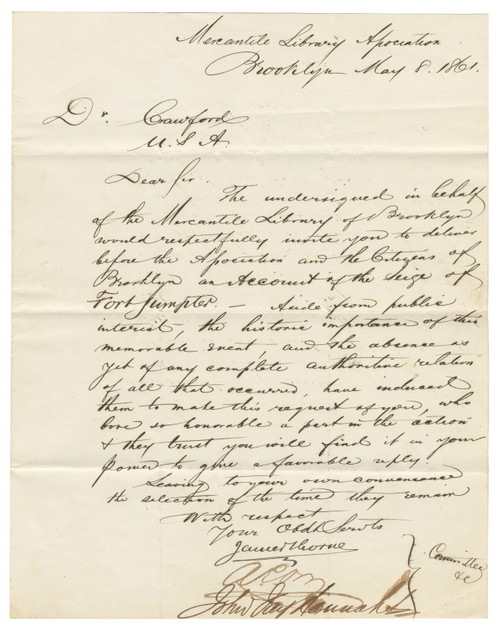 Mercantile Library Association
Brooklyn May 8. 1861.
Dr. Cawford
U. S. A.
Dear Sir.
The undersigned in behalf
of the Mercantile Library of Brooklyn
would respectfully invite you to deliver
before the Association and the Citizens of
Brooklyn an Account of the Seige of
Fort Sumpter. — Aside from public
interest, the historic importance of this
memorable event, and the absence as
yet of any complete authoritive relation
of all that occurred, have induced
them to make this request of you, who
bore so honorable a part in the action
& they trust you will find it in your
power to give a favorable reply.
Leaving to your own convenience
the selection of the time they remain
With respect
Your Obdt Servts
James Thorne
John Jay
Committee
&c